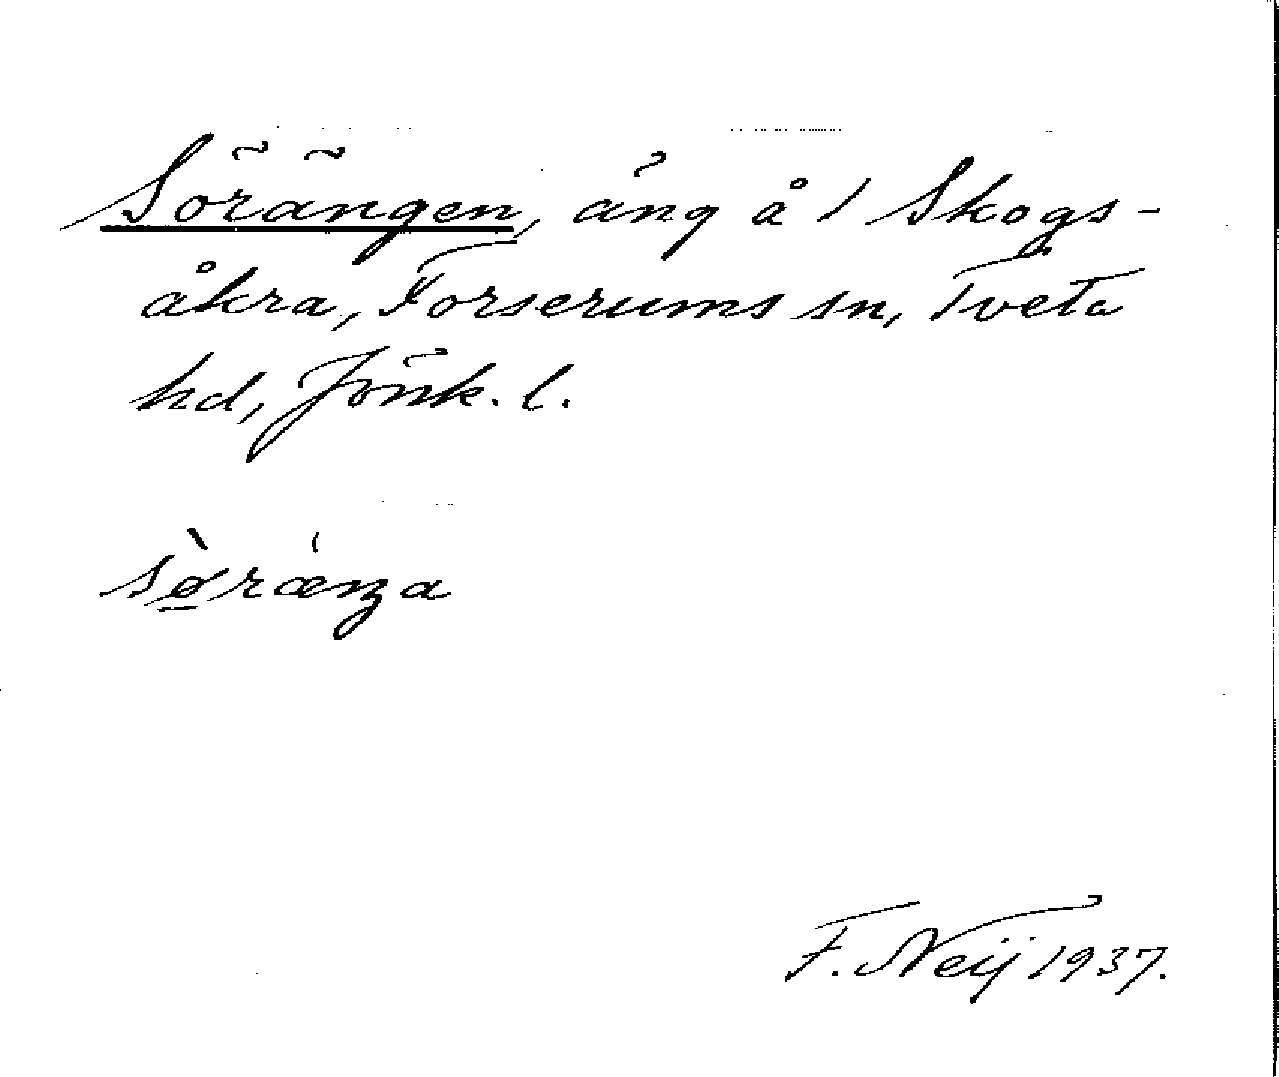 Sörängen, äng å 1 Skogs-
åkra, Forserums sn, Tveta
hd, Jönk. l.
sø̀ræ̀ŋa
F. Neij 1937.